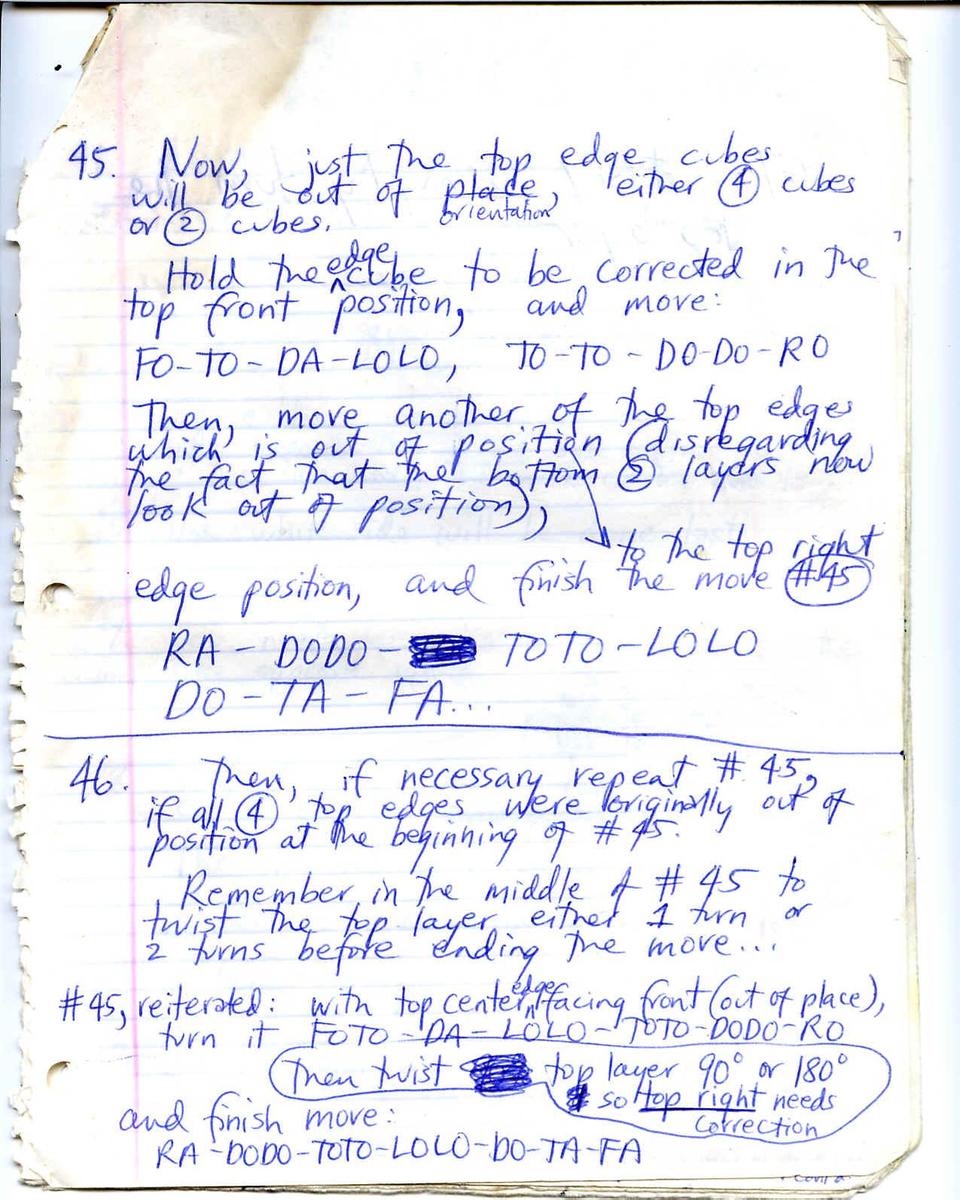 45. Now, just the top edge cubes
will be out of place, either 4 cubes
orientation
or 2 cubes.
Hold the edge cube to be corrected in the
top front position, and move:
FO-TO-DA-LOLO, TO-TO-DO-DO-RO
Then, move another of the top edges
which is out of position (disregarding
the fact that the bottom 2 layers now
look out of position),
to the top right
edge position, and finish the move #45
RA - DODO - TOTO - LOLO
DO - TA - FA...
46. Then, if necessary repeat # 45,
if all 4 top edges were originally out of
position at the beginning of # 45.
Remember in the middle of # 45 to
twist the top layer either 1 turn or
2 turns before ending the move...
#45, reiterated: with top center edge facing front (out of place),
turn it FOTO-DA-LOLO-TOTO-DODO-RO
Then twist top layer 90° or 180°
so top right needs
correction
and finish move:
RA-DODO-TOTO-LOLO-DO-TA-FA